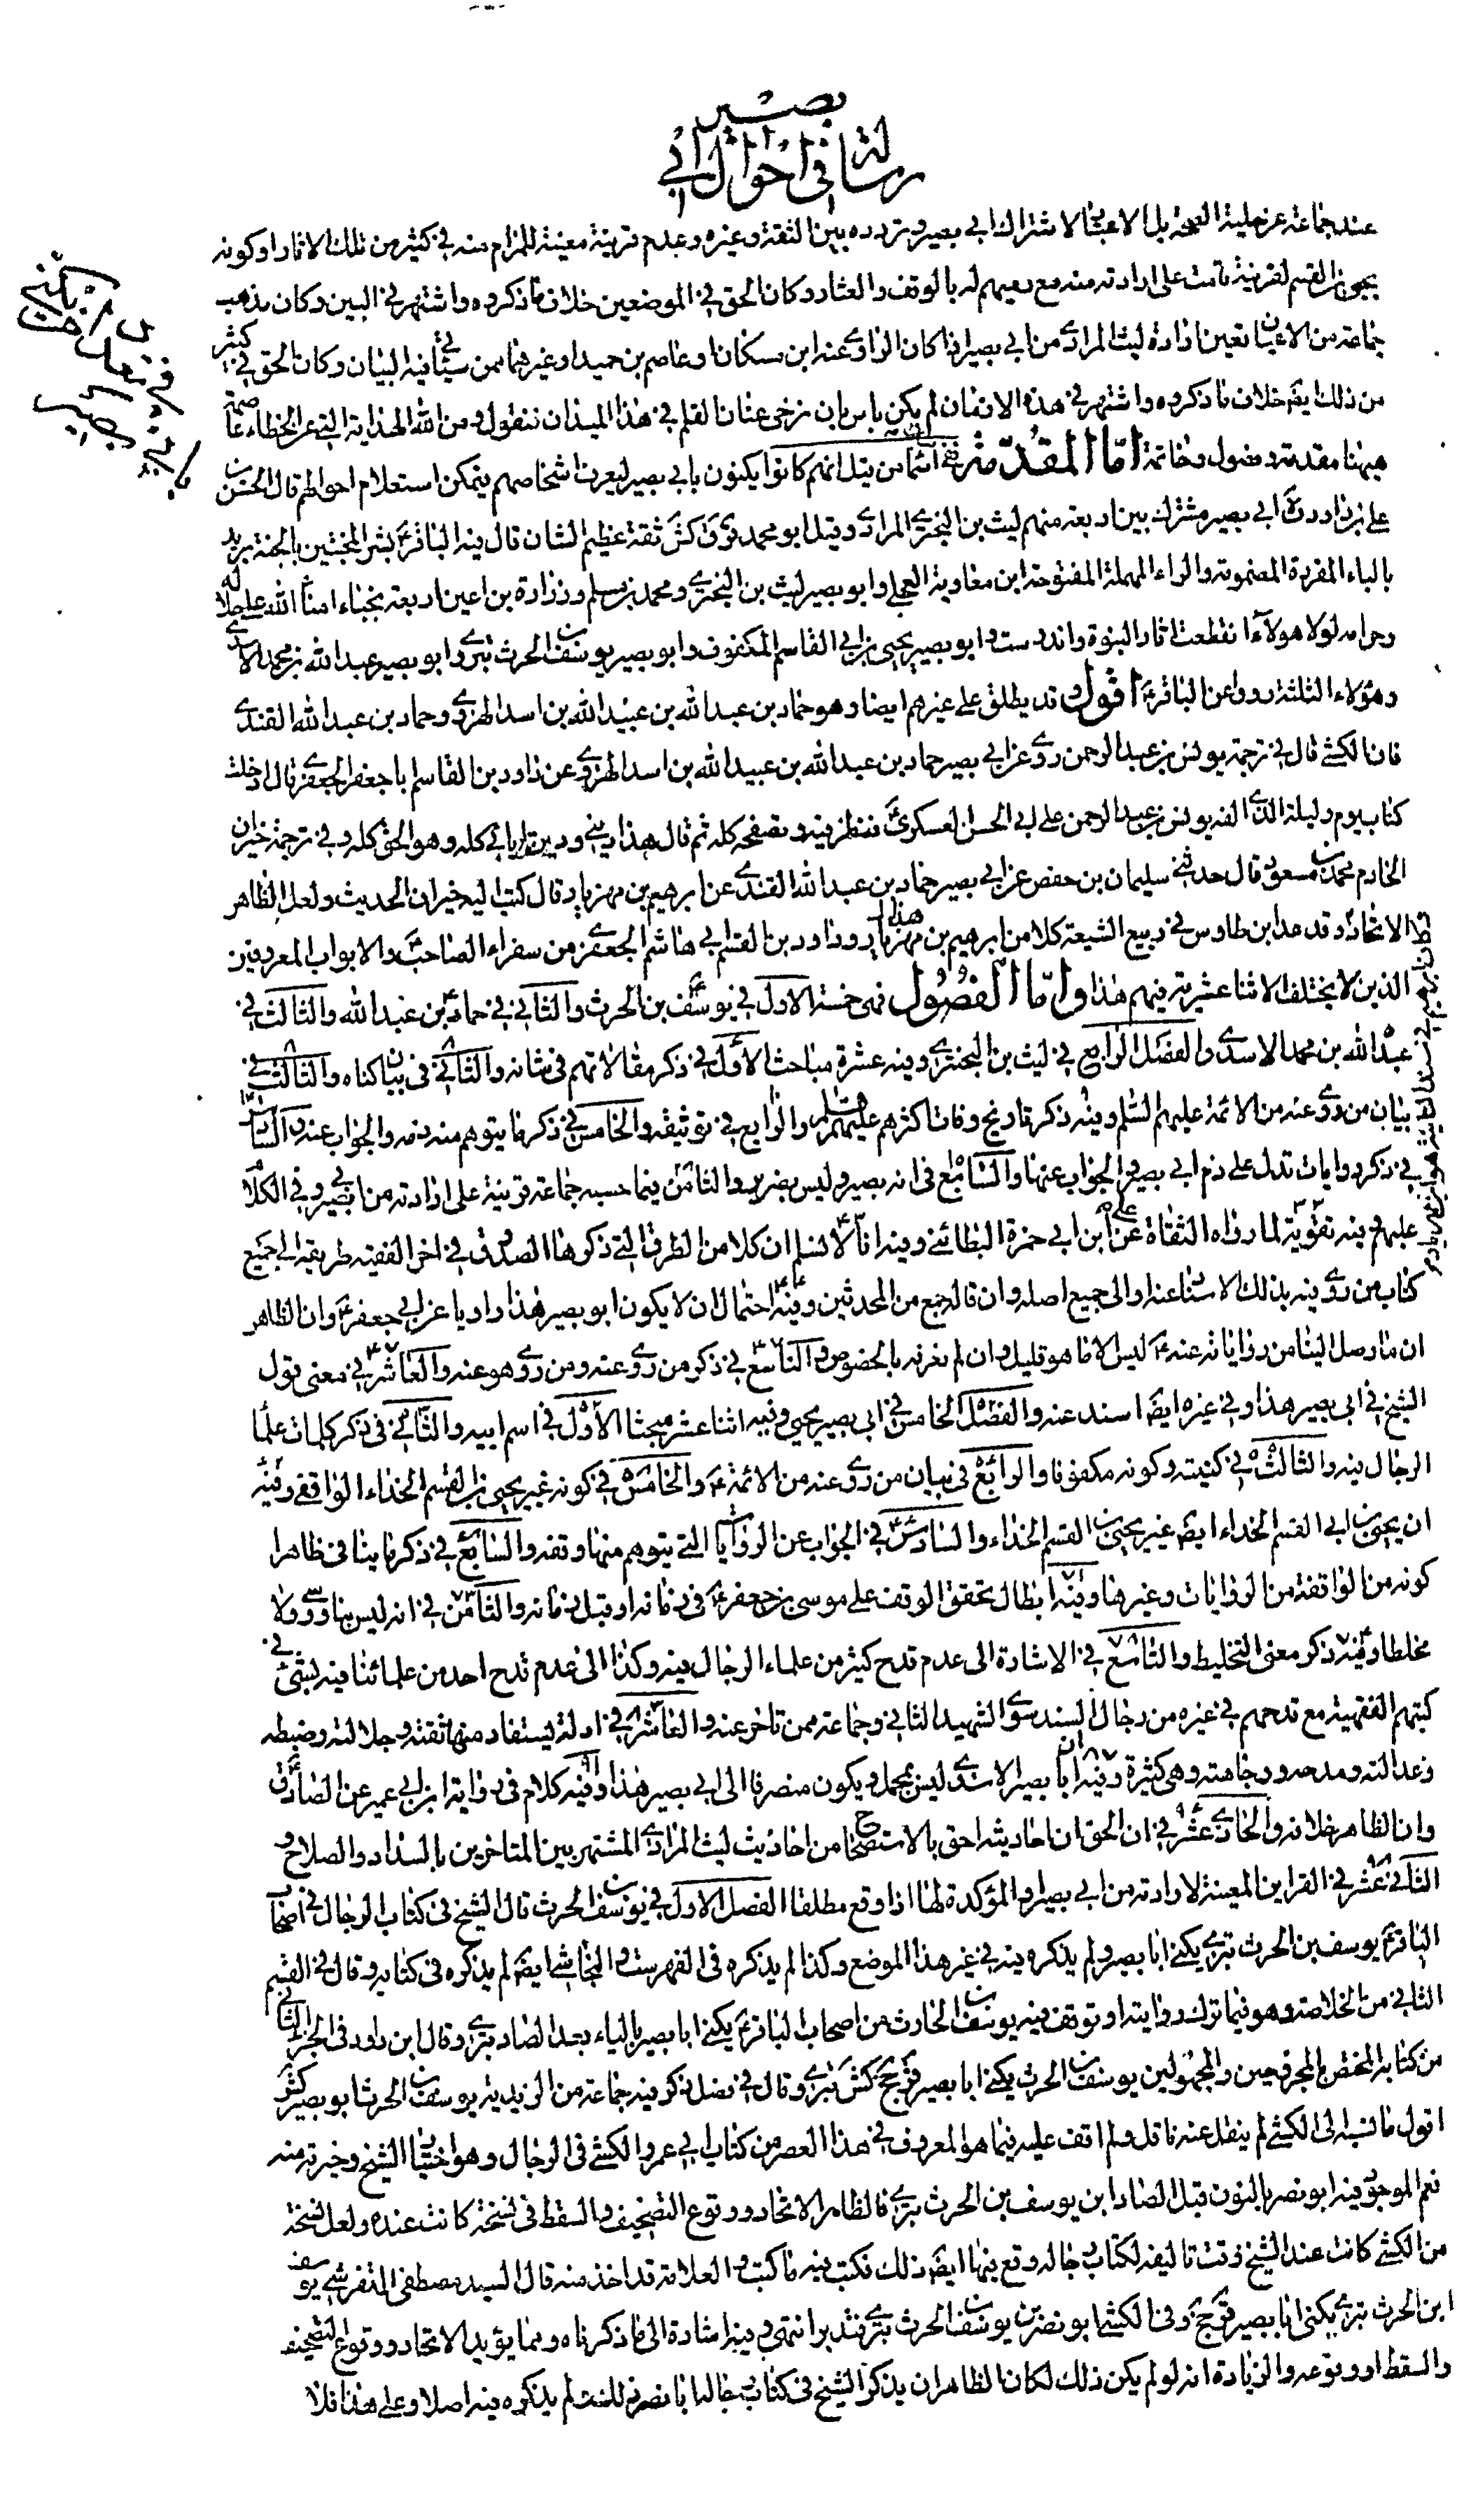 رسالة في احوال ابي بصير
عند جماعة عن حلية الصحة بل الاعتبار لاشتراك ابي بصير و تردده بين الثقة و غيره و عدم قرينة معينة للمرام منه في كثير من تلك الاثار او كونه
يحيى بن القسم لقرينة قامت على ارادته منه مع رميهم له بالوقف و العثار و كان الحق في الموضعين خلاف ما ذكروه و اشتهر في البين و كان مذهب
جماعة من الاعيان تعين ارادة ليث المرادي من ابي بصير اذا كان الراوي عنه ابن مسكان او عاصم بن حميد او غيرهما ممن سيأتي فيه البيان و كان الحق في كثير
من ذلك ايضا خلاف ما ذكروه و اشتهر في هذه الازمان لم يكن باس بان نرخي عنان القلم في هذا الميدان فنقول و من الله الهداية الى عن الخطاء عاصمة
هيهنا مقدمة و فصول و خاتمة اما المقدمة ففي اسماء من قيل انهم كانوا يكنون بابي بصير ليعرف اشخاصهم فيمكن استعلام احوالهم قال الحسن بن
علي بن داود ره ابي بصير مشترك بين اربعة منهم ليث بن البختري المرادي و قيل ابو محمد ق كش ثقة عظيم الشان قال فيه الباقر ع بشر المخبتين بالجنة بريد
بالباء المفردة المضمومة و الراء المهملة المفتوحة ابن معاوية العجلي و ابو بصير ليث بن البختري و محمد بن مسلم و زرارة بن اعين اربعة نجباء امناء الله على حلاله
و حرامه لولا هولاء انقطعت اثار النبوة و اندرست و ابو بصير يحيى بن ابي القاسم المكفوف و ابو بصير يوسف بن الحرث بتري و ابو بصير عبد الله بن محمد الاسدي
و هؤلاء الثلثة رووا عن الباقر ع اقول و قد يطلق على غيرهم ايضا و هو حماد بن عبد الله بن عبيد الله بن اسد الهروي و حماد بن عبد الله القندي
فان الكشي قال في ترجمة يونس بن عبد الرحمن روى عن ابي بصير حماد بن عبد الله بن عبيد الله بن اسد الهروي عن داود بن القاسم ابا جعفر الجعفري قال ادخلت
كتاب يوم و ليلة الذي الفه يونس بن عبد الرحمن على ابي الحسن العسكري ع فنظر فيه و تصفحه كله ثم قال هذا ديني و دين ابائي كله و هو الحق كله و في ترجمة خيران
الخادم محمد بن مسعود قال حدثني سليمان بن حفص عن ابي بصير حماد بن عبد الله القندي عن ابرهيم بن مهزيار قال كتب اليه خيران الحديث و لعل الظاهر
الاتحاد و قد عد ابن طاوس في ربيع الشيعة كلا من ابرهيم بن مهزيار هذا و داود بن القسم ابي هاشم الجعفري من سفراء الصاحب ع و الابواب المعروفين
الذين لا يختلف الاثنا عشرية فيهم هذا و اما الفصول فهي خمسة الاول في يوسف بن الحرث و الثاني في حماد بن عبد الله و الثالث في
عبد الله بن محمد الاسدي و الفصل الرابع في ليث بن البختري و فيه عشرة مباحث الاول في ذكر مقالاتهم في شانه و الثاني في بيان كناه و الثالث في
بيان من روى عنه من الائمة عليهم السلم و فيه ذكر تاريخ وفات اكثرهم عليهم السلم و الرابع في توثيقه و الخامس في ذكر ما يتوهم منه ذمه و الجواب عنه و السادس
في ذكر روايات تدل على ذم ابي بصير و الجواب عنها و السابع في انه بصير و ليس بضرير و الثامن فيما حسبه جماعة قرينة على ارادته من ابي بصير و في الكلام
عليهم فيه تقوية لما رواه الثقاة عن علي ابن ابي حمزة البطائني و فيه انا لا نسلم ان كلا من الطرق التي ذكرها الصدوق في اخر الفقيه طريقه الى جميع
كتاب من روى فيه بذلك الاسناد عنه او الى جميع اصله و ان قاله جمع من المحدثين و فيه احتمال ان لا يكون ابو بصير هذا راويا عن ابي جعفر ع و ان الظاهر
ان ما وصل الينا من رواياته عنه ع ليس الا ما هو قليل و ان لم نعرفه بالخصوص و التاسع في ذكر من روى عنه و من روى هو عنه و العاشر في معنى قول
الشيخ في ابي بصير هذا و في غيره ايضا اسند عنه و الفصل الخامس في ابي بصير يحيى و فيه اثنا عشر مبحثا الاول في اسم ابيه و الثاني في ذكر كلمات علماء
الرجال فيه و الثالث في كنيته و كونه مكفوفا و الرابع في بيان من روى عنه من الائمة ع و الخامس في كونه غير يحيى بن القسم الحذاء الواقفي و فيه
ان يحيى بن ابي القسم الحذاء ايضا غير يحيى بن القسم الحذاء و السادس في الجواب عن الروايات التي يتوهم منها وقفه و السابع في ذكر ما ينافي ظاهرا
كونه من الواقفة من الروايات و غيرها و فيه ابطال تحقق الوقف على موسى بن جعفر ع في زمانه او قبل زمانه و الثامن في انه ليس بناووسي و لا
مخلطا و فيه ذكر معنى التخليط و التاسع في الاشارة الى عدم قدح كثير من علماء الرجال فيه و كذا الى عدم قدح احد من علمائنا فيه بشئ في
كتبهم الفقهية مع قدحهم في غيره من رجال السند سوى الشهيد الثاني و جماعة ممن تاخر عنه و العاشر في ادلة يستفاد منها ثقته و جلالته و ضبطه
و عدالته و مدحه و وجاهته و هي كثيرة و فيه ان ابا بصير الاسدي ليس بمجمل و يكون منصرفا الى ابي بصير هذا و فيه كلام في رواية ابن ابي عمير عن الصادق ع
و ان الظاهر خلافه و الحادي عشر في ان الحق ان احاديثه احق بالاستصحاح من احاديث ليث المرادي المشتهر بين المتاخرين بالسداد و الصلاح و
الثاني عشر في القراين المعينة لارادته من ابي بصير او المؤكدة لها اذا وقع مطلقا الفصل الاول في يوسف بن الحرث قال الشيخ في كتاب الرجال في اصحاب
الباقر ع يوسف بن الحرث بتري يكنى ابا بصير و لم يذكره فيه في غير هذا الموضع و كذا لم يذكره في الفهرست و النجاشي ايضا لم يذكره في كتابه و قال في القسم
الثاني من الخلاصة و هو فيما ترك روايته او توقف فيه يوسف بن الحارث من اصحاب الباقر ع يكنى ابا بصير بالياء بعد الصاد بتري و قال ابن داود في الجزء الثاني
من كتابه المختص بالمجروحين و المجهولين يوسف بن الحرث يكنى ابا بصير قر جخ كش بتري و قال في فصل ذكر فيه جماعة من الزيدية يوسف بن الحرث ابو بصير كش
اقول ما نسبه الى الكشي لم ينقل عنه ناقل و لم اقف عليه فيما هو المعروف في هذا العصر من كتاب ابي عمرو الكشي في الرجال و هو اختيار الشيخ و خيرته منه
نعم الموجود فيه ابو نصر بالنون قبل الصاد ابن يوسف بن الحرث بتري فالظاهر الاتحاد و وقوع التصحيف و السقط في نسخة كانت عنده و لعل نسخة
من الكشي كانت عند الشيخ وقت تاليفه لكتاب رجاله وقع فيها ايضا ذلك فكتب فيه ما كتب و العلامة قد اخذ منه قال السيد مصطفى التفرشي يوسف
ابن الحرث بتري يكنى ابا بصير قر جخ و في الكشي ابو نصر بن يوسف بن الحرث بتري فتدبر انتهى و فيه اشارة الى ما ذكرناه و مما يؤيد الاتحاد و وقوع التصحيف
و السقط او وقوعه و الزيادة انه لو لم يكن ذلك لكان الظاهر ان يذكر الشيخ في كتاب رجاله ابا نصر فللفت لم يذكره فيه اصلا و على هذا فلا